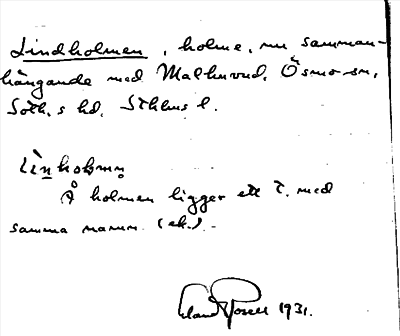 Lindholmen, holme, nu samman-
hängande med Malhuvud, Ösmo sn,
Soth.s hd, Sthlms l.
Linholmn
Å holmen ligger ett t. med
samma namn (ek.).-
Erland Rosell 1931.